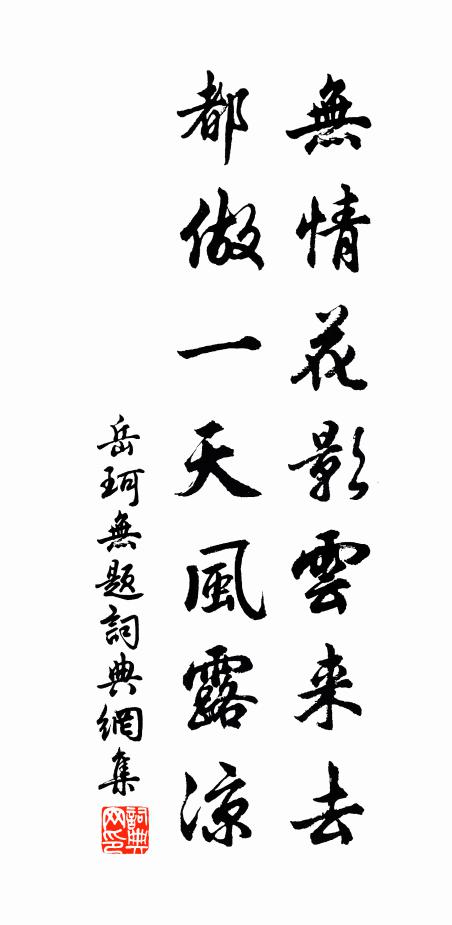 無情花影雲来去
都做一天風露涼
岳珂無题詞典網集
詞典網印